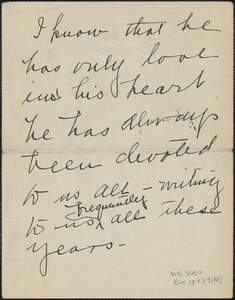 I know that he
has only love
in his heart
he has always
been devoted
to us all - writing
frequently
to us, all these
years -